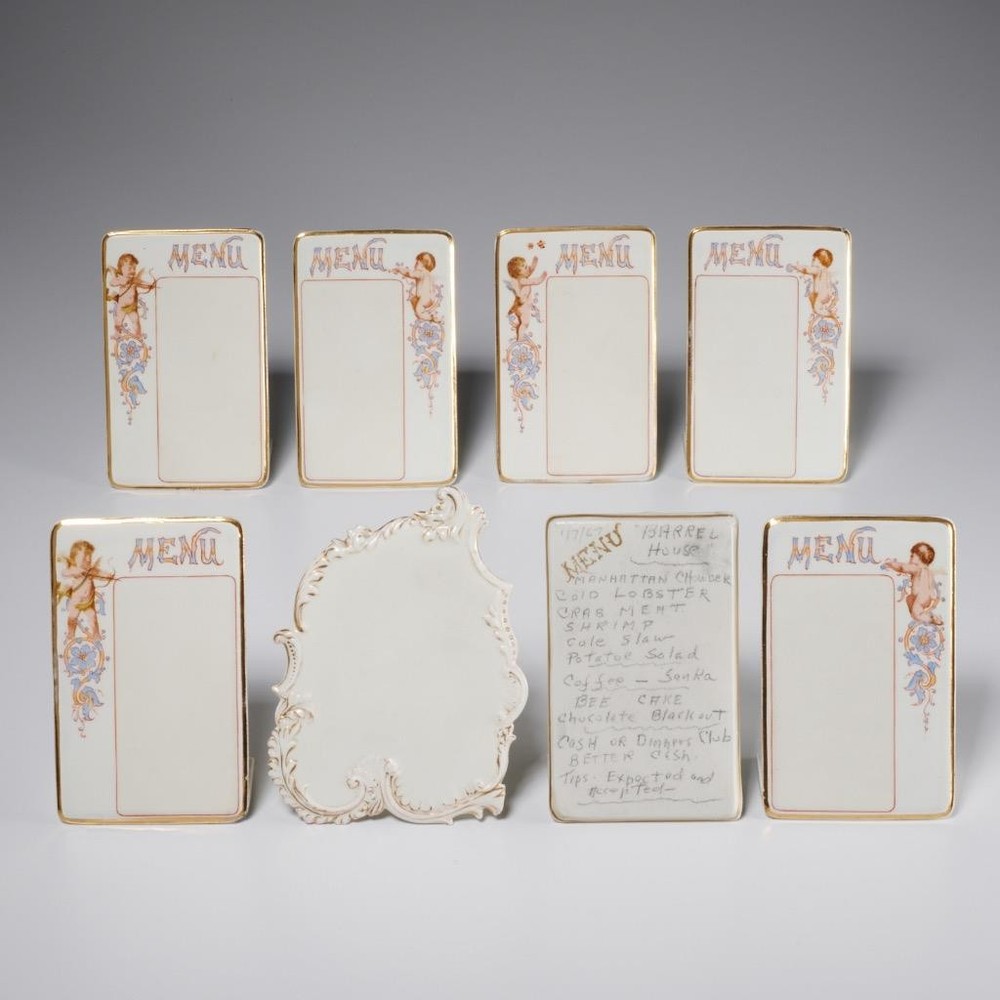 MENU
MENU
MENU
MENU
MENU
MENU
"BARREL
House"
MANHATTAN CHOWDER
COLD LOBSTER
CRAB MEAT
SHRIMP
Cole Slaw
Potatoe Salad
Coffee - Sanka
BEE CAKE
Chocolate Blackout
CASH OR Dinners Club
BETTER CASH.
Tips - Expected and
Accepted-
MENU